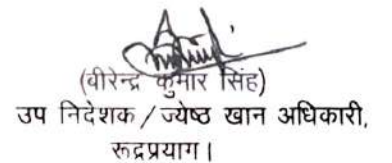 (वीरेन्द्र कुमार सिंह)
उप निदेशक / ज्येष्ठ खान अधिकारी,
रूद्रप्रयाग।